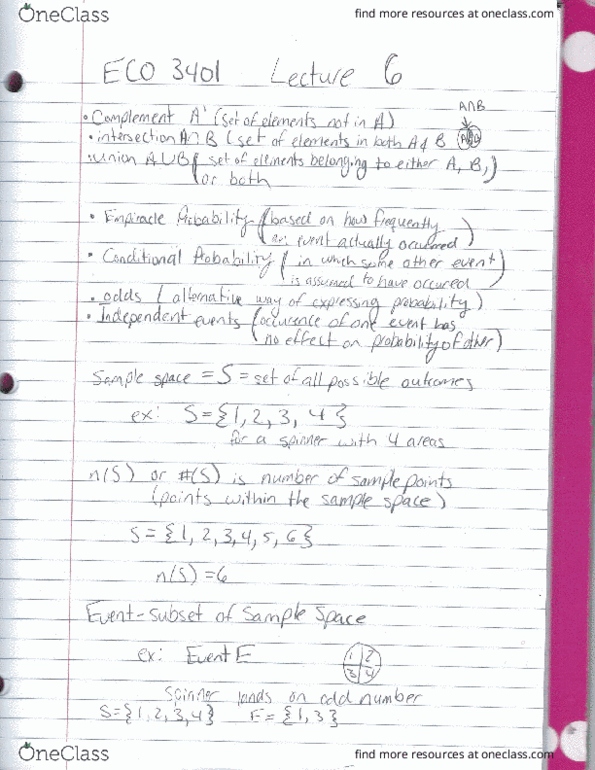 OneClass
find more resources at oneclass.com
ECO 3401 Lecture 6
A∩B
• Complement A' (set of elements not in A)
• intersection A∩B (set of elements in both A & B
• union A∪B (set of elements belonging to either A, B,
or both)
• Empiracle Probability (based on how frequently
an event actually occured)
• Conditional Probability (in which some other event
is assumed to have occured)
• odds (alternative way of expressing probability)
• Independent events (occurence of one event has
no effect on probability of other)
Sample space = S = set of all possible outcomes
ex: S={1,2,3,4}
for a spinner with 4 areas
n(S) or #(S) is number of sample points
(points within the sample space)
S={1,2,3,4,5,6}
n(S)=6
Event-subset of Sample Space
ex: Event E
1 2
3 4
Spinner lands on odd number
S={1,2,3,4} E={1,3}
OneClass
find more resources at oneclass.com